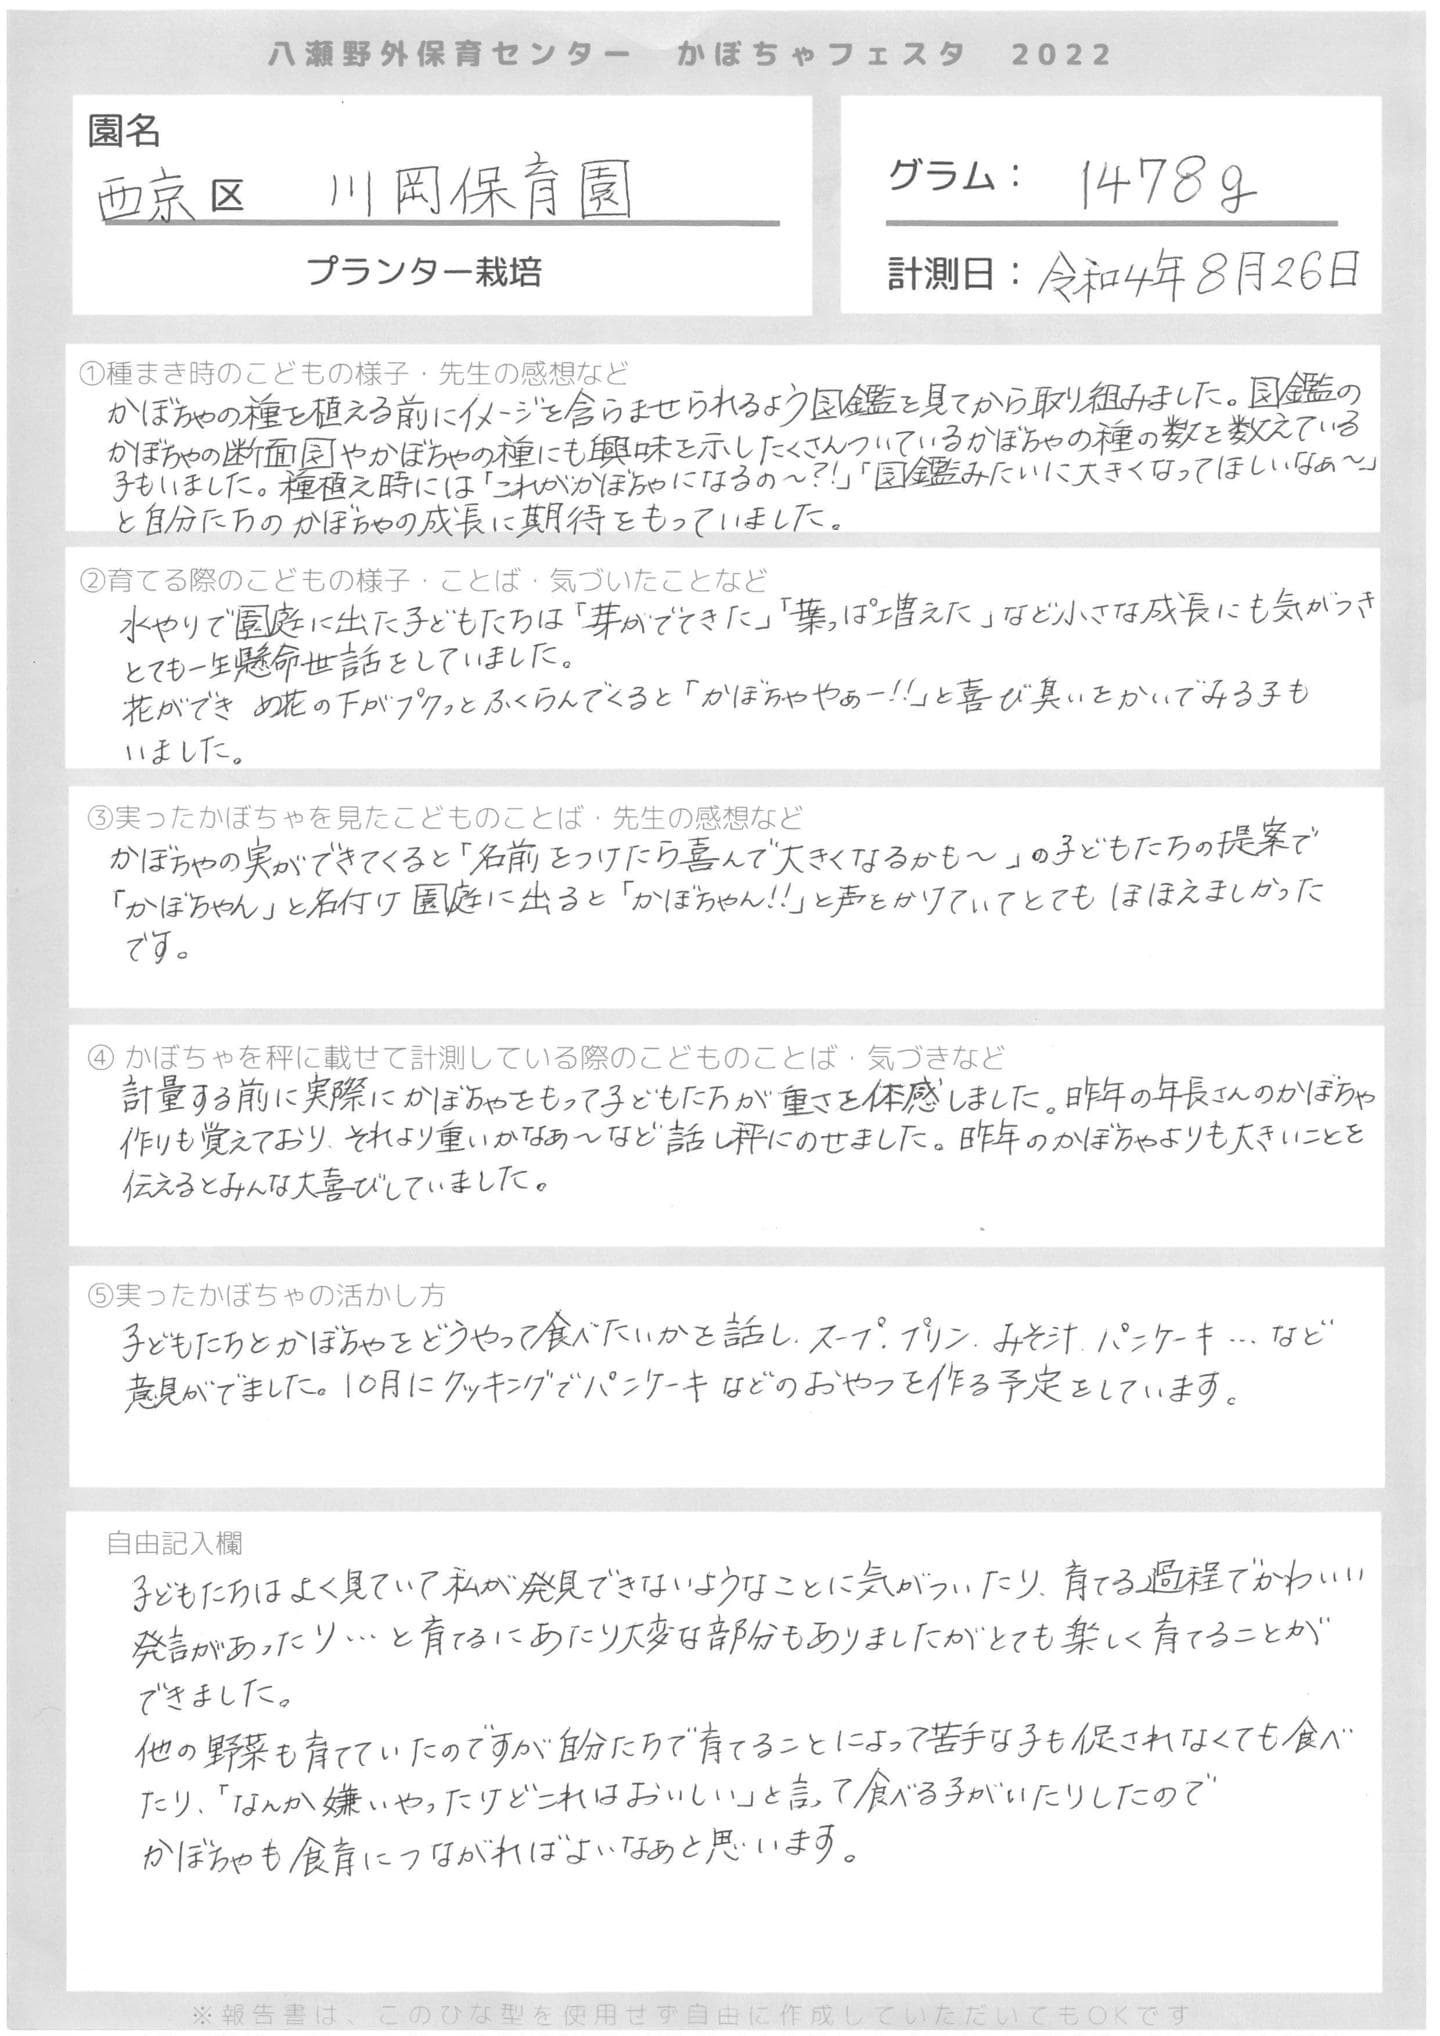 八瀬野外保育センター　かぼちゃフェスタ　2022
園名
西京区　川岡保育園
プランター栽培
グラム：　1478g
計測日：令和4年8月26日
①種まき時のこどもの様子・先生の感想など
かぼちゃの種を植える前にイメージを含らませられるよう図鑑を見てから取り組みました。図鑑の
かぼちゃの断面図やかぼちゃの種にも興味を示したくさんついているかぼちゃの種の数を数えている
子もいました。種植え時には「これがかぼちゃになるの～?!」「図鑑みたいに大きくなってほしいなぁ～」
と自分たちのかぼちゃの成長に期待をもっていました。
②育てる際のこどもの様子・ことば・気づいたことなど
水やりで園庭に出た子どもたちは「芽がでてきた」「葉っぱ増えた」など小さな成長にも気がつき
とても一生懸命世話をしていました。
花ができ め花の下がプクッとふくらんでくると「かぼちゃやぁー!!」と喜び臭いをかいでみる子も
いました。
③実ったかぼちゃを見たこどものことば・先生の感想など
かぼちゃの実ができてくると「名前をつけたら喜んで大きくなるかも～」の子どもたちの提案で
「かぼちゃん」と名付け 園庭に出ると「かぼちゃん!!」と声をかけていてとても ほほえましかった
です。
④ かぼちゃを秤に載せて計測している際のこどものことば・気づきなど
計量する前に実際にかぼちゃをもって子どもたちが重さを体感しました。昨年の年長さんのかぼちゃ
作りも覚えており、それより重いかなぁ～など話し秤にのせました。昨年のかぼちゃよりも大きいことを
伝えるとみんな大喜びしていました。
⑤実ったかぼちゃの活かし方
子どもたちとかぼちゃをどうやって食べたいかを話し、スープ、プリン、みそ汁、パンケーキ…など
意見がでました。10月にクッキングでパンケーキなどのおやつを作る予定をしています。
自由記入欄
子どもたちはよく見ていて私が発見できないようなことに気がついたり、育てる過程でかわいい
発言があったり…と育てるにあたり大変な部分もありましたがとても楽しく育てることが
できました。
他の野菜も育てていたのですが自分たちで育てることによって苦手な子も促されなくても食べ
たり、「なんか嫌いやったけどこれはおいしい」と言って食べる子がいたりしたので
かぼちゃも食育につながればよいなぁと思います。
※報告書は、このひな型を使用せず自由に作成していただいてもOKです